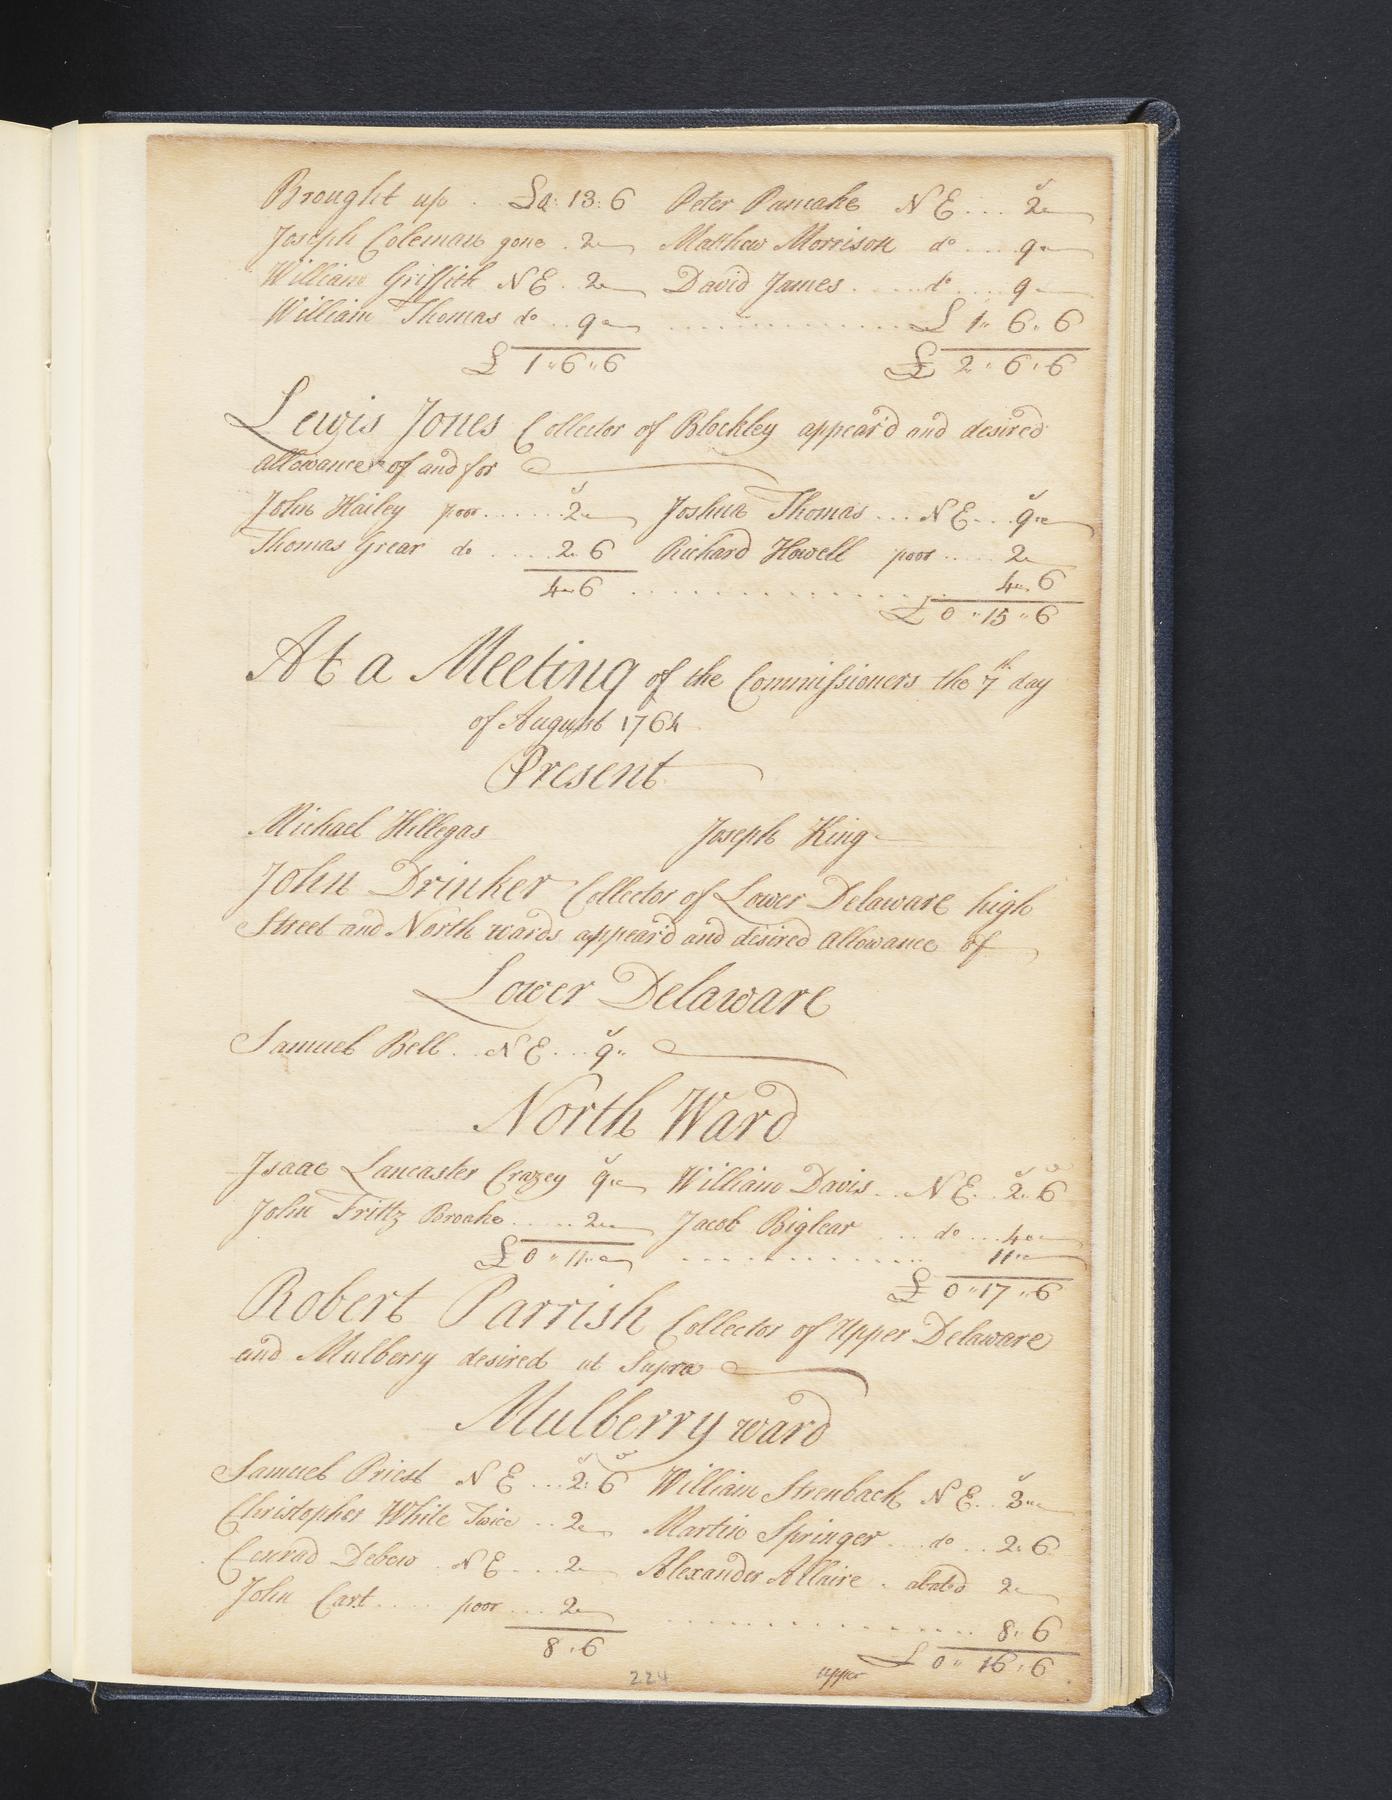 Brought up . . £0: 13: 6 Peter Pancake NE... 2
Joseph Coleman gone . 2 Matthew Morrison do .... 9
William Griffith NE . 2 David James ..... do .... 9
William Thomas do .. 9 ............... £ 1" 6" 6
£ 1" 6" 6 £ 2" 6" 6
Lewis Jones Collector of Blockley appear'd and desired
allowance of and for
John Hailey poor ....... 2 Joshua Thomas ... NE... 9
Thomas Grear do .... 2 6 Richard Howell poor ..... 2
4 6 .............. 4 6
£ 0 " 15 " 6
At a Meeting of the Commissioners the 7th day
of August 1764
Present
Michael Hillegas Joseph King
John Drinker Collector of Lower Delaware high
Street and North wards appear'd and desired allowance of
Lower Delaware
Samuel Bell . . NE ... 9"
North Ward
Isaac Lancaster Crazey 9" William Davis .. NE .. 2. 6
John Frittz Broake ...... 2 Jacob Biglear .... do ... 4
£ 0 " 11 " ............ 11
£ 0 " 17 " 6
Robert Parrish Collector of Upper Delaware
and Mulberry desired ut Supra
Mulberry ward
Samuel Priest NE ... 2: 6 William Strenback NE .. 3
Christopher White Twice .. 2 Martin Springer ... do .. 2: 6
Conrad Debow . NE .... 2 Alexander Allaire . abated 2
John Cart ..... poor ... 2 ............... 8: 6
8 " 6 £ 0 " 16 " 6
224 upper